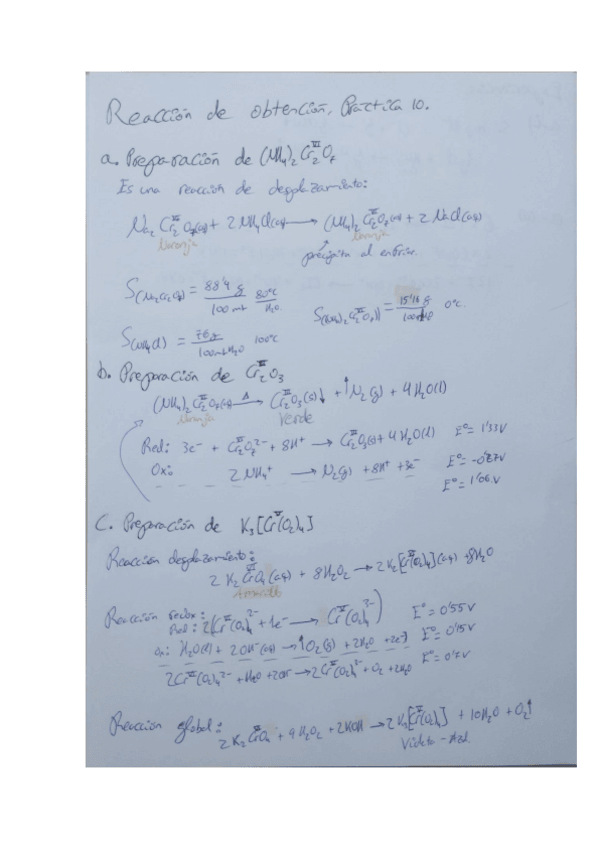 Reacción de obtención, Práctica 10.
a. Preparación de (NH₄)₂Cr₂^VI O₇
Es una reacción de desplazamiento:
Na₂Cr₂^VI O₇(aq) + 2NH₄Cl(aq) → (NH₄)₂Cr₂^VI O₇(aq) + 2NaCl(aq)
Naranja Naranja
precipita al enfriar.
S(Na₂Cr₂O₇) = 88'4 g / 100 ml H₂O 80ºC
S((NH₄)₂Cr₂^VI O₇) = 15'16 g / 100 0ºC.
S(NH₄Cl) = 76 g / 100ml H₂O 100ºC
b. Preparación de Cr₂^III O₃
(NH₄)₂Cr₂^VI O₇(s) Δ→ Cr₂^III O₃(s)↓ + ↑N₂(g) + 4H₂O(l)
Naranja Verde
Red: 3e⁻ + Cr₂^VI O₇²⁻ + 8H⁺ → Cr₂^III O₃(s) + 4H₂O(l) Eº = 1'33V
Ox: 2NH₄⁺ → N₂(g) + 8H⁺ + 3e⁻ Eº = -0'27V
Eº = 1'06V
C. Preparación de K₃[Cr^V(O₂)₄]
Reacción desplazamiento:
2K₂Cr^VI O₄(aq) + 8H₂O₂ → 2K₂[Cr^VI(O₂)₄](aq) + 8H₂O
Amarillo
Reacción redox:
Red: 2(Cr^VI(O₂)₄²⁻ + 1e⁻ → Cr^V(O₂)₄³⁻) Eº = 0'55V
Ox: H₂O(l) + 2OH⁻(aq) → ↑O₂(g) + 2H₂O + 2e⁻ Eº = 0'15V
2Cr^VI(O₂)₄²⁻ + H₂O + 2OH⁻ → 2Cr^V(O₂)₄³⁻ + O₂ + 2H₂O
Reacción global:
2K₂Cr^VI O₄ + 9H₂O₂ + 2KOH → 2K₃[Cr^V(O₂)₄] + 10H₂O + O₂↑
Violeta - Azul